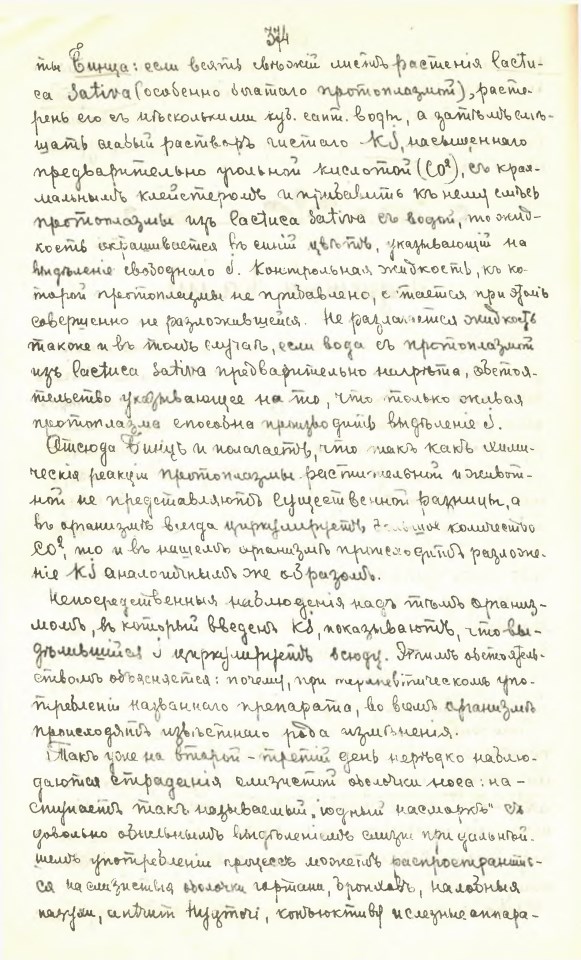 374
ты Бинца: если взять свѣжій листъ растенія lactu-
ca sativa (особенно богатаго протоплазмой), расте-
реть его съ нѣсколькими куб. сант. воды, а затѣмъ смѣ-
шать слабый растворъ чистаго KJ, насыщеннаго
предварительно угольной кислотой (CO²), съ крах-
мальнымъ клейстеромъ и прибавить къ нему смѣсь
протоплазмы изъ lactuca sativa съ водой, то жид-
кость окрашивается въ синій цвѣтъ, указывающій на
выдѣленіе свободнаго J. Контрольная жидкость, къ ко-
торой протоплазмы не прибавлено, остается при этомъ
совершенно не разложившейся. Не разлагается жидкость
также и въ томъ случаѣ, если вода съ протоплазмой
изъ lactuca sativa предварительно нагрѣта, обстоя-
тельство указывающее на то, что только живая
протоплазма способна производить выдѣленіе J.
Отсюда Бинцъ и полагаетъ, что такъ какъ хими-
ческія реакціи протоплазмы растительной и живот-
ной не представляютъ существенной разницы, а
въ организмѣ всегда циркулируетъ большое количество
CO², то и въ нашемъ организмѣ происходитъ разложе-
ніе KJ аналогичнымъ же образомъ.
Непосредственныя наблюденія надъ тѣмъ организ-
момъ, въ который введенъ KJ, показываютъ, что вы-
дѣлившійся J циркулируетъ всюду. Этимъ обстоятель-
ствомъ объясняется: почему, при терапевтическомъ упо-
требленіи названнаго препарата, во всемъ организмѣ
происходятъ извѣстнаго рода измѣненія.
Такъ уже на второй-третій день нерѣдко наблю-
даются страданія слизистой оболочки носа: на-
ступаетъ такъ называемый „іодный насморкъ" съ
довольно обильнымъ выдѣленіемъ слизи при дальнѣй-
шемъ употребленіи процессъ можетъ распространить-
ся на слизистыя оболочки гортани, бронховъ, на лобныя
пазухи, конъюктиву и слезные аппара-